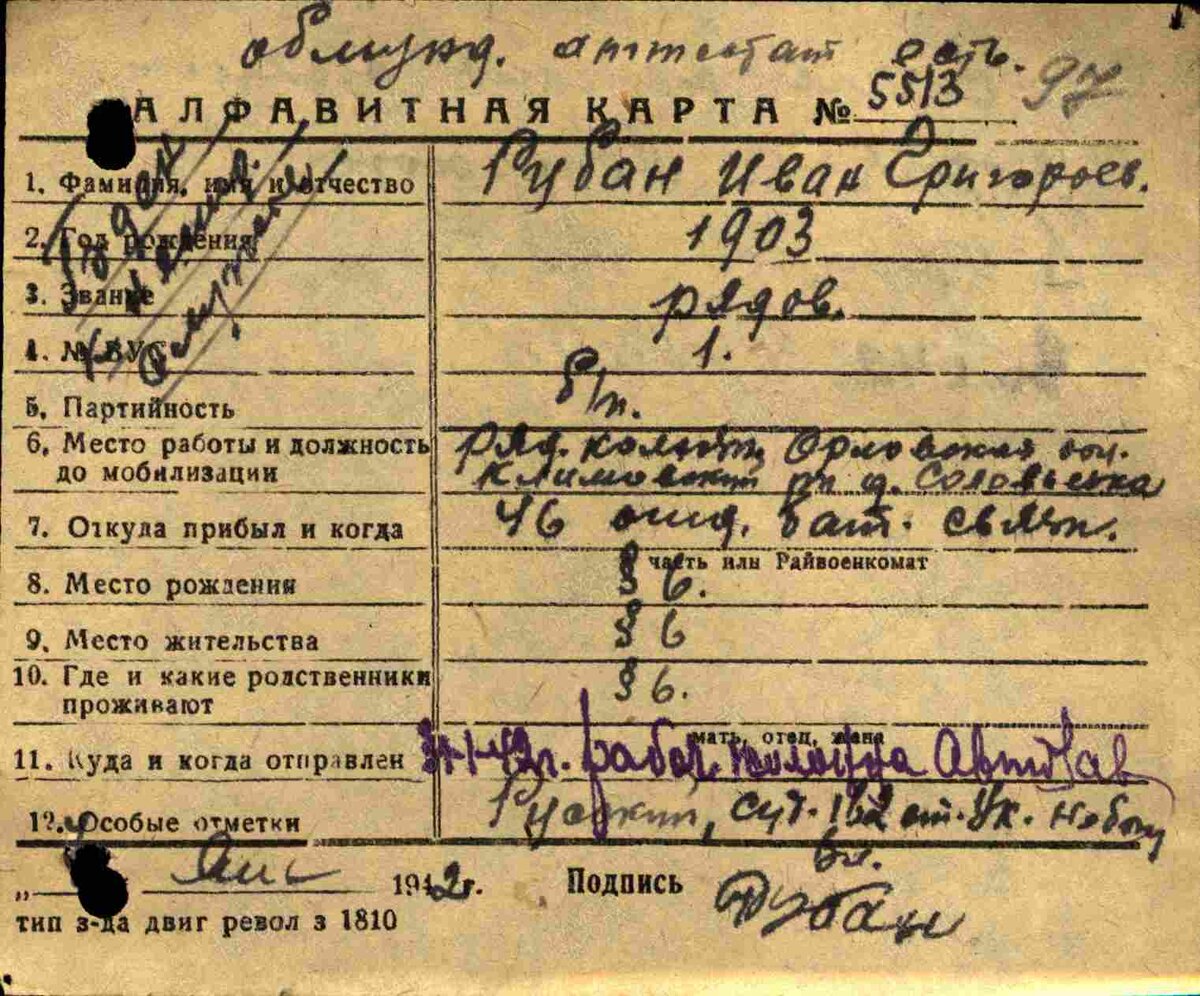 обмунд. аттестат есть.
АЛФАВИТНАЯ КАРТА № 5513 97
1. Фамилия, имя и отчество Рубан Иван Григорьев.
2. Год рождения 1903
3. Звание рядов.
4. № ВУС 1.
5. Партийность б/п.
6. Место работы и должность ряд. колхоз. Орловская обл.
до мобилизации Климовский рн д. Соловьевка
7. Откуда прибыл и когда 46 бат. связи.
часть или Райвоенкомат
8. Место рождения § 6.
9. Место жительства § 6
10. Где и какие родственники § 6.
проживают
мать, отец, жена
11. Куда и когда отправлен 1-42г. рабоч. колонна
12. Особые отметки Русский,
1942г. Подпись Рубан
тип з-да двиг револ з 1810